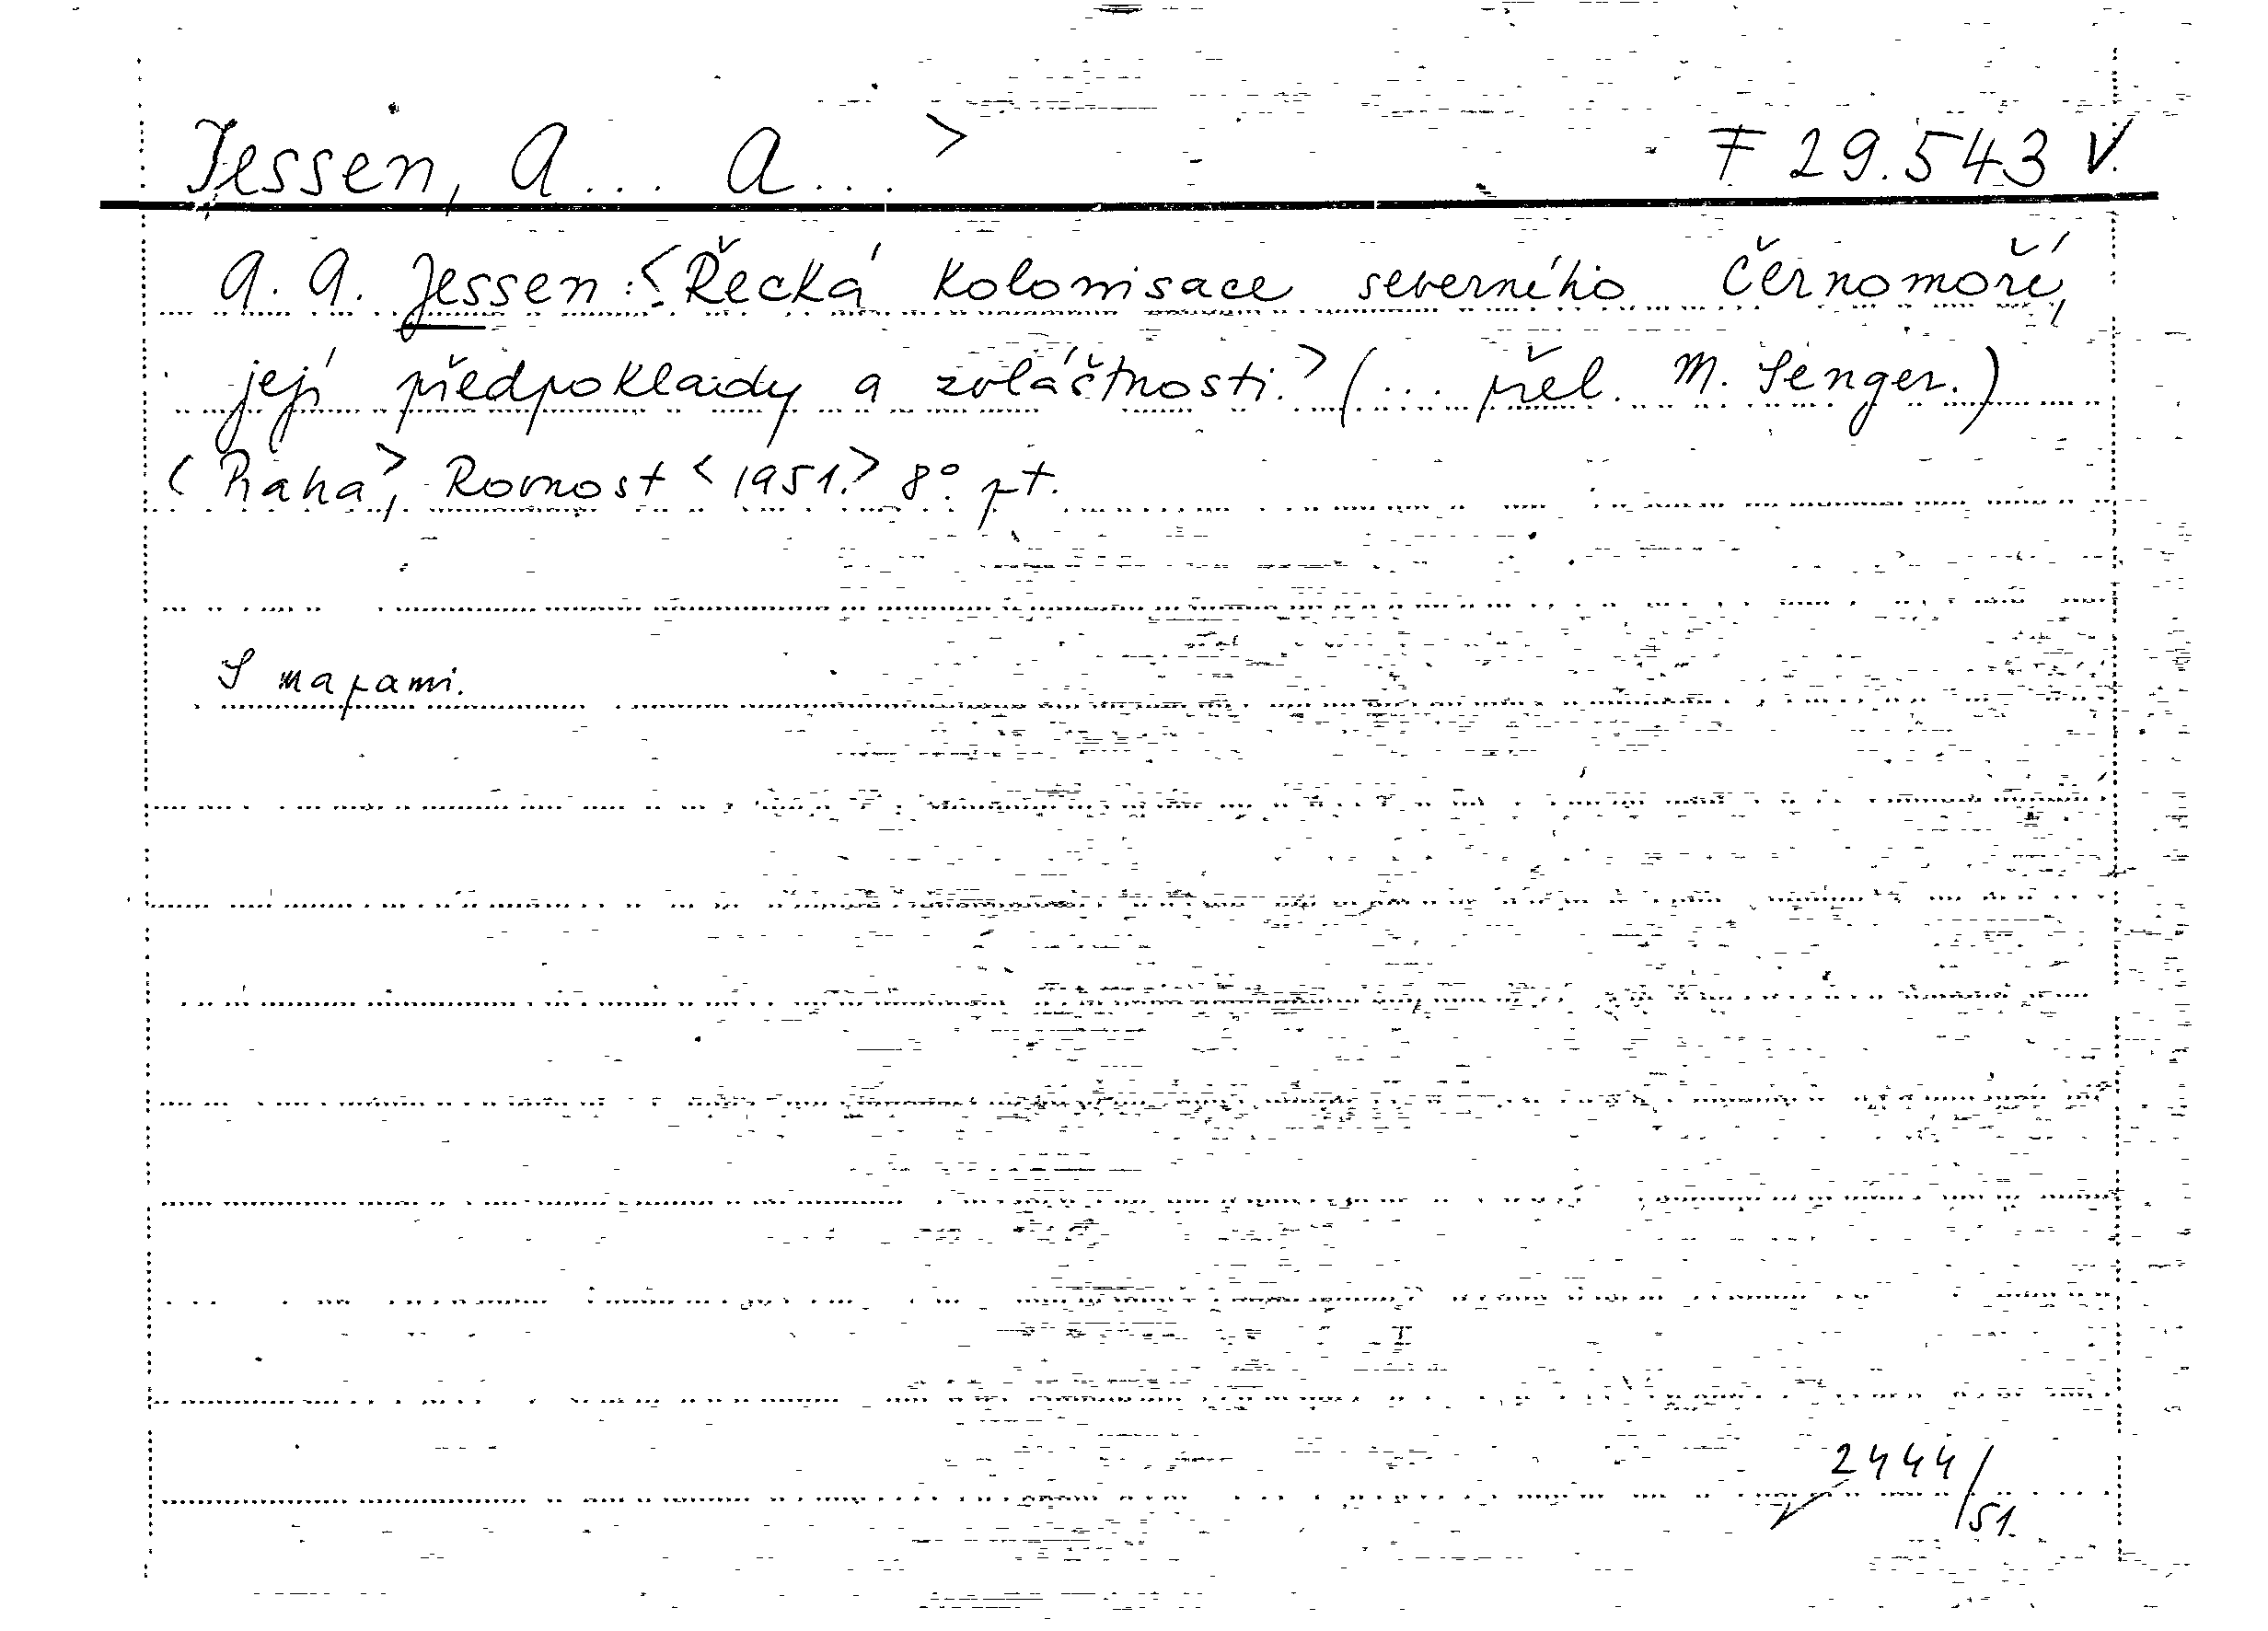 Jessen, A... A... > F 29.543 V.
A. A. Jessen: <Řecká kolonisace severního Černomoří,
její předpoklady a zvláštnosti.> (... přel. M. Senger.)
<Praha>, Rovnost <1951.> 8°. pt.
S mapami.
2444/51.